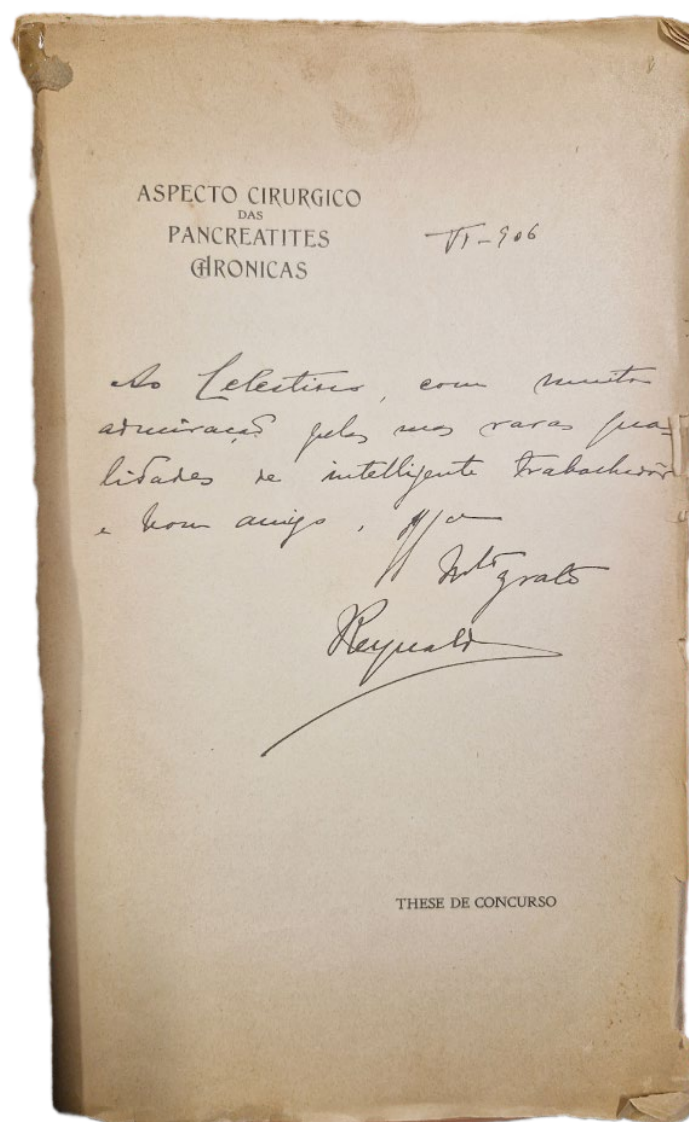 ASPECTO CIRURGICO
DAS
PANCREATITES
CHRONICAS
VI-906
Ao Celestino, com muita
admiração pelas suas raras qua-
lidades de intelligente trabalhador
e bom amigo,
mto grato
Reynaldo
THESE DE CONCURSO